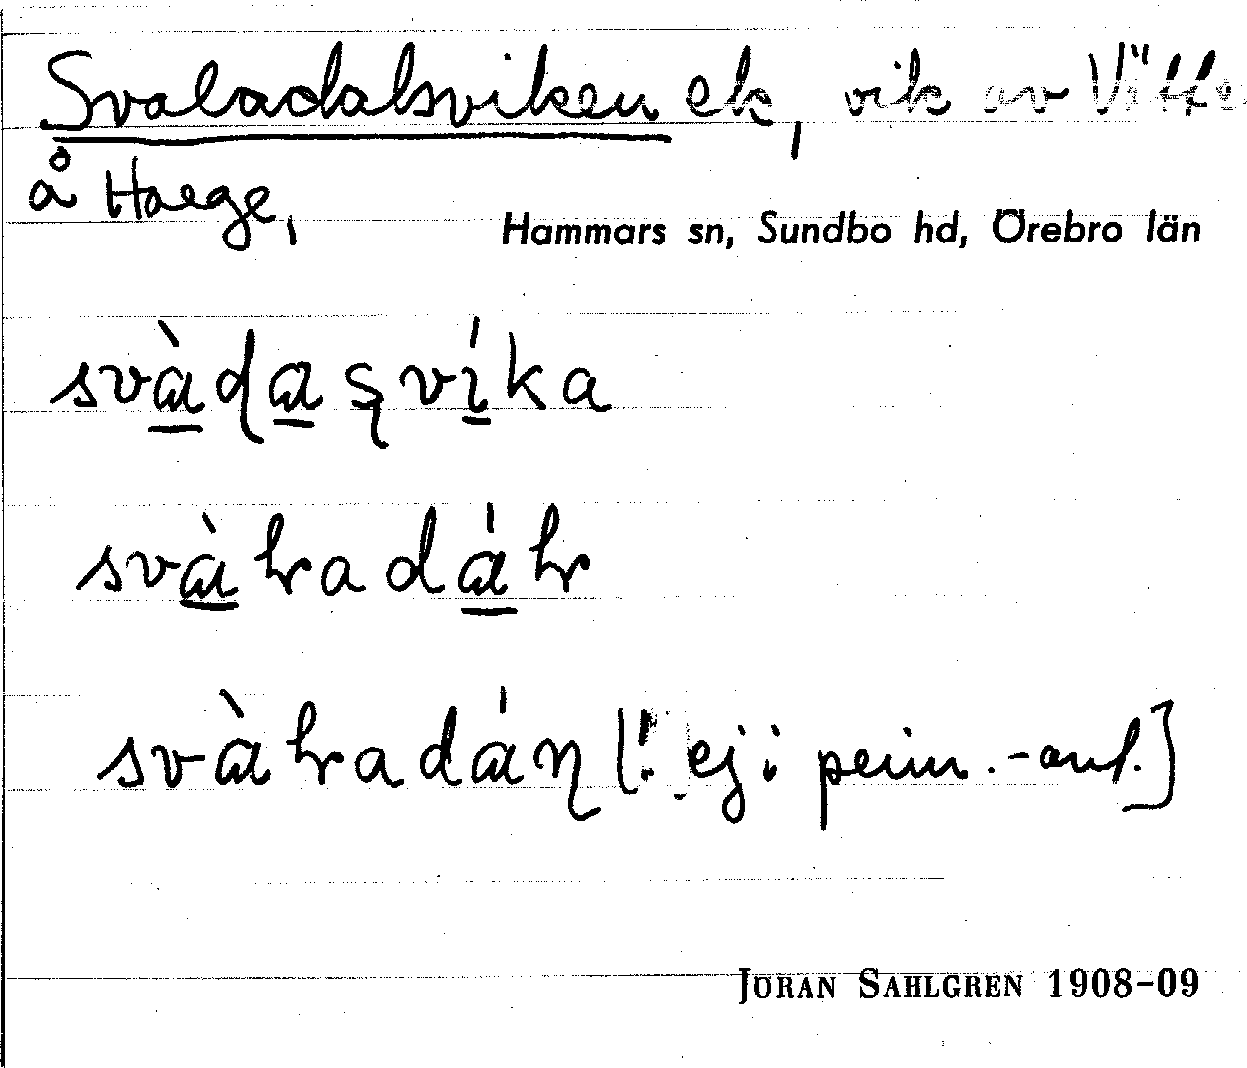 Svaladalsviken ek, vik av Vätte
å Harge,
Hammars sn, Sundbo hd, Örebro län
svàd̨asvíka
svàƚadáƚ
svàƚadáɳ [! ej i prim.-anl.]
JÖRAN SAHLGREN 1908–09